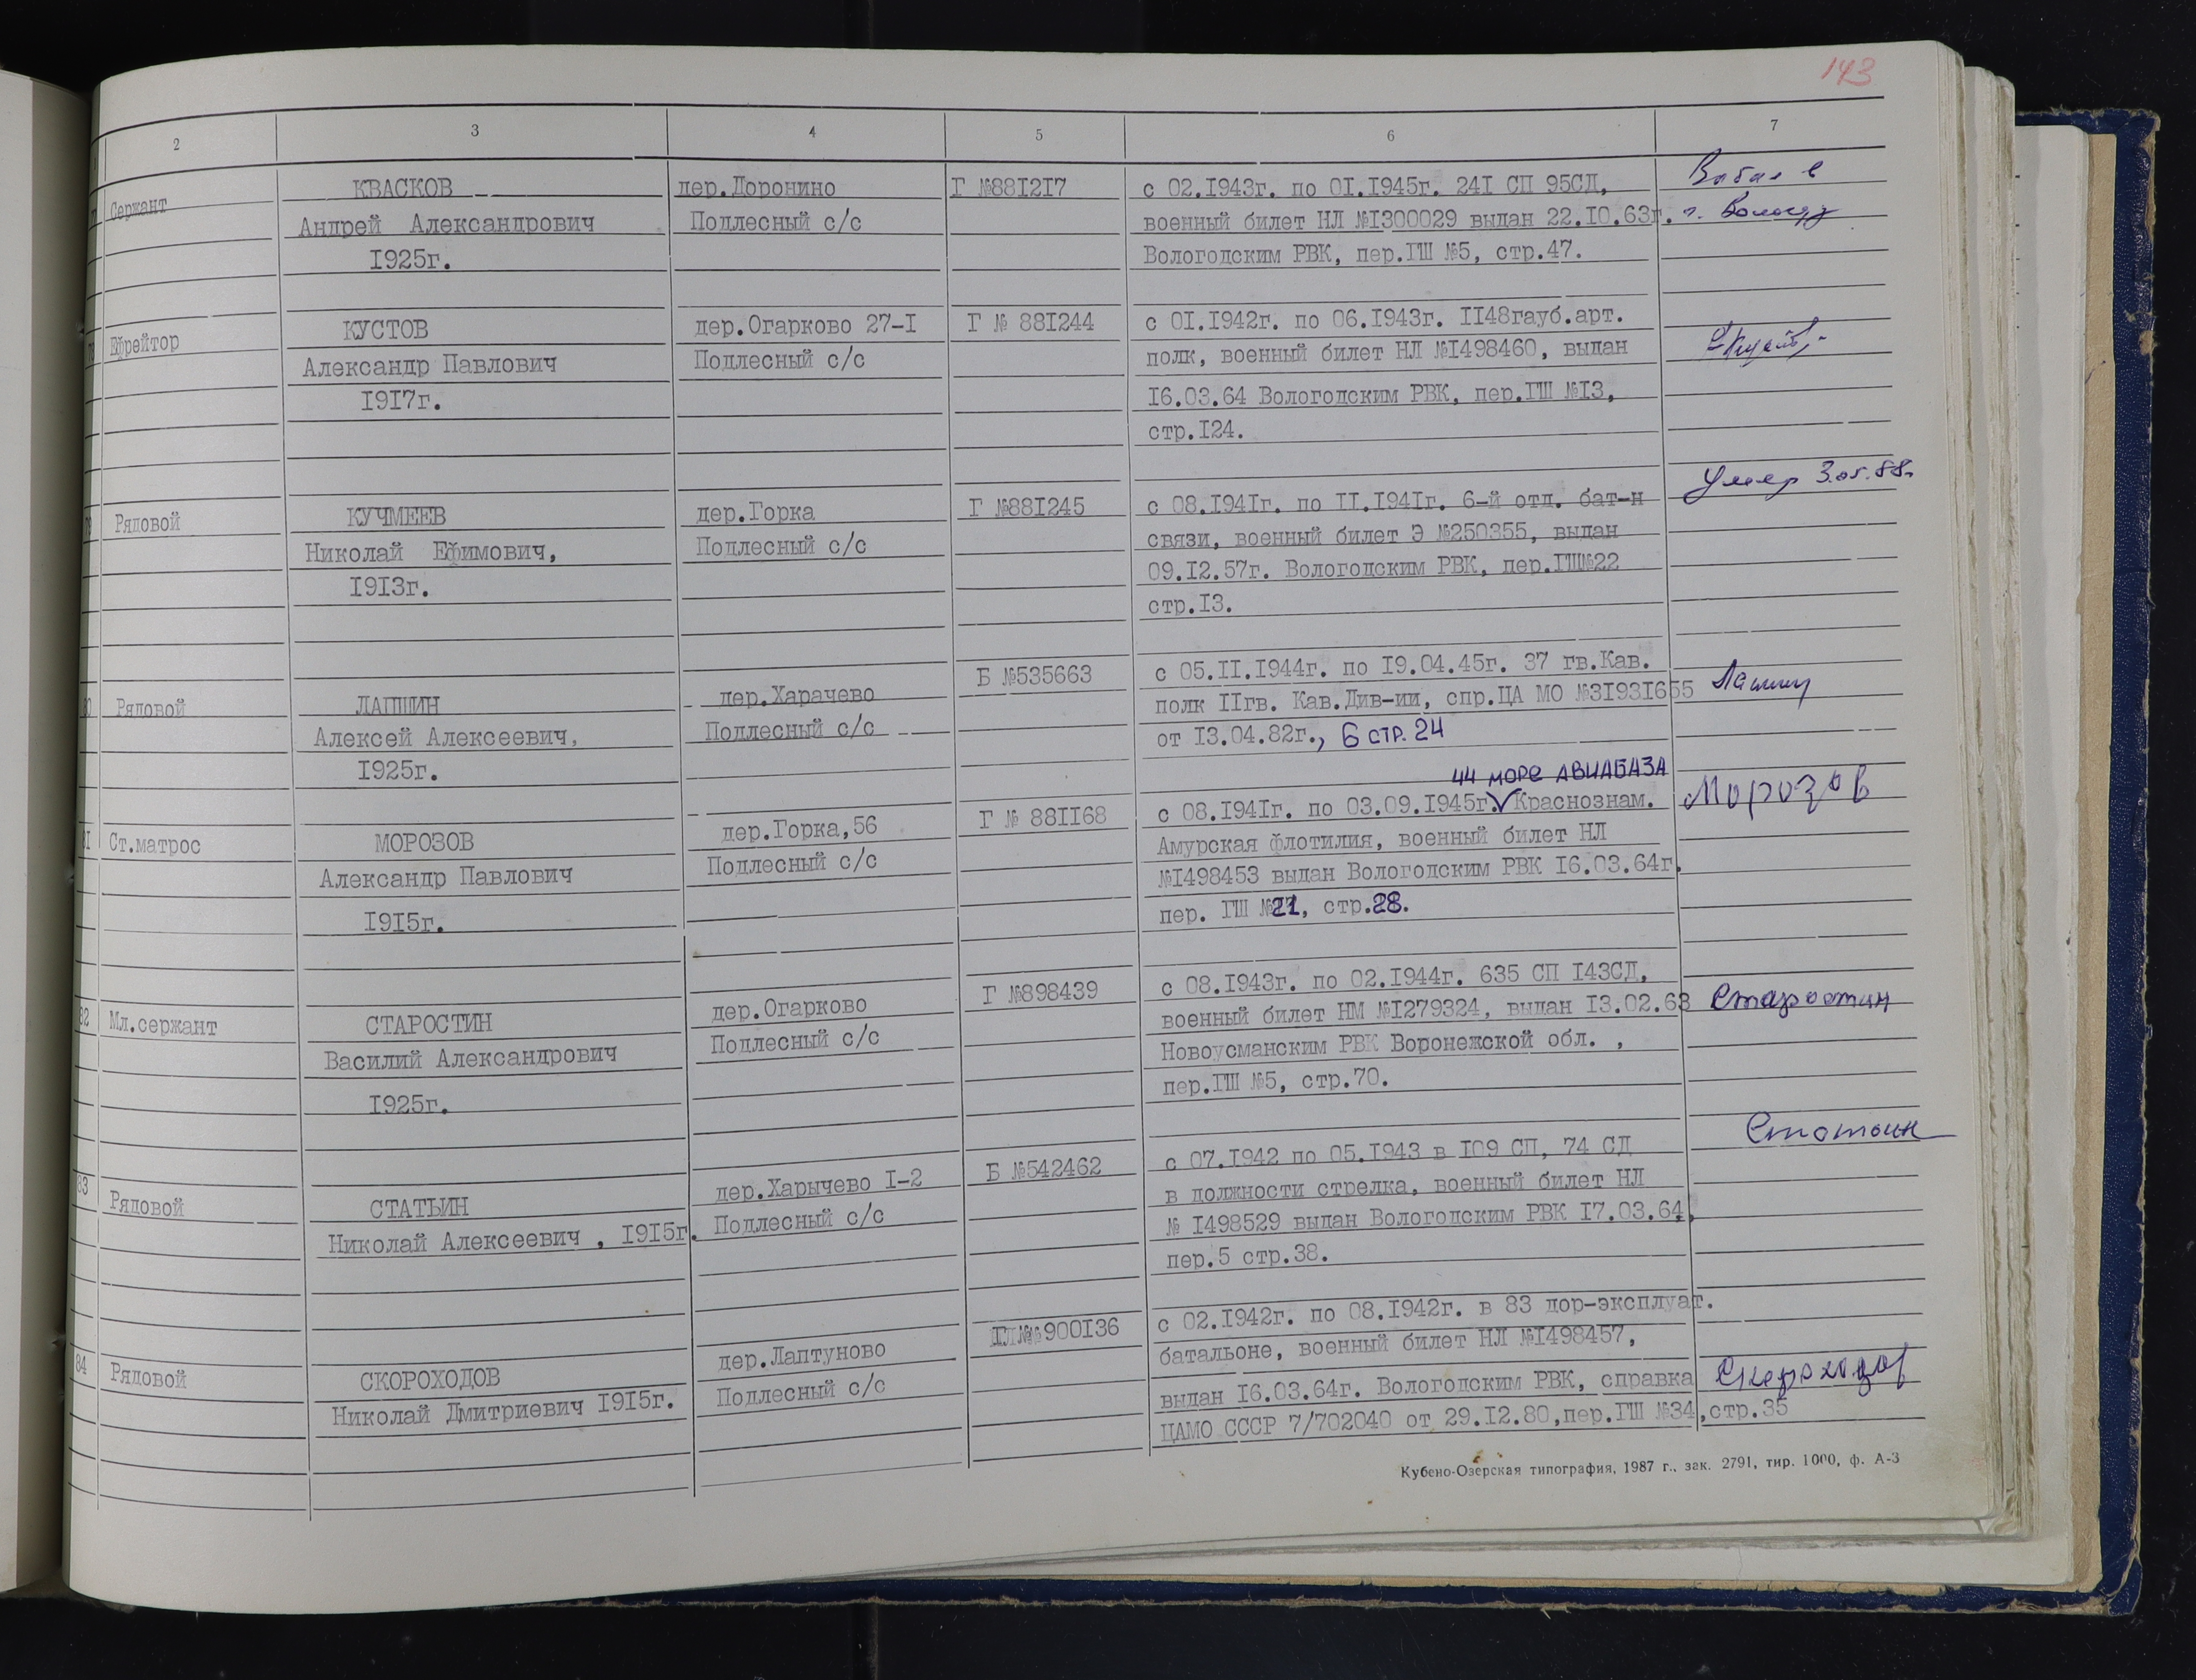 143
2 3 4 5 6 7
Сержант КВАСКОВ дер.Доронино Г №881217 с 02.1943г. по 01.1945г. 241 СП 95СД,
Андрей Александрович Подлесный с/с военный билет НЛ №1300029 выдан 22.10.63г. г. Вологду
1925г. Вологодским РВК, пер.ГШ №5, стр.47.
Ефрейтор КУСТОВ дер.Огарково 27-1 Г № 881244 с 01.1942г. по 06.1943г. 1148гауб.арт.
Александр Павлович Подлесный с/с полк, военный билет НЛ №1498460, выдан
1917г. 16.03.64 Вологодским РВК, пер.ГШ №13,
стр.124.
Умер 3.05.88г
79 Рядовой КУЧМЕЕВ дер.Горка Г №881245 с 08.1941г. по 11.1941г. 6-й отд. бат-н
Николай Ефимович, Подлесный с/с связи, военный билет Э №250355, выдан
1913г. 09.12.57г. Вологодским РВК, пер.ГШ№22
стр.13.
80 Рядовой ЛАПШИН дер.Харачево Б №535663 с 05.11.1944г. по 19.04.45г. 37 гв.Кав.
Алексей Алексеевич, Подлесный с/с полк 11гв. Кав.Див-ии, спр.ЦА МО №31931655
1925г. от 13.04.82г., 6 стр. 24
44 море АВИАБАЗА
81 Ст.матрос МОРОЗОВ дер.Горка,56 Г № 881168 с 08.1941г. по 03.09.1945г. Краснознам. Морозов
Александр Павлович Подлесный с/с Амурская флотилия, военный билет НЛ
1915г. №1498453 выдан Вологодским РВК 16.03.64г.
пер. ГШ №21, стр.28.
82 Мл.сержант СТАРОСТИН дер.Огарково Г №898439 с 08.1943г. по 02.1944г. 635 СП 143СД,
Василий Александрович Подлесный с/с военный билет НМ №1279324, выдан 13.02.63 Старостин
1925г. Новоусманским РВК Воронежской обл. ,
пер.ГШ №5, стр.70.
83 Рядовой СТАТЬИН дер.Харычево 1-2 Б №542462 с 07.1942 по 05.1943 в 109 СП, 74 СД Статьин
Николай Алексеевич , 1915г. Подлесный с/с в должности стрелка, военный билет НЛ
№ 1498529 выдан Вологодским РВК 17.03.64,
пер.5 стр.38.
84 Рядовой СКОРОХОДОВ дер.Лаптуново №900136 с 02.1942г. по 08.1942г. в 83 дор-эксплуат.
Николай Дмитриевич 1915г. Подлесный с/с батальоне, военный билет НЛ №1498457,
выдан 16.03.64г. Вологодским РВК, справка Скороходов
ЦАМО СССР 7/702040 от 29.12.80,пер.ГШ №34,стр.35
Кубено-Озерская типография, 1987 г., зак. 2791, тир. 1000, ф. А-3